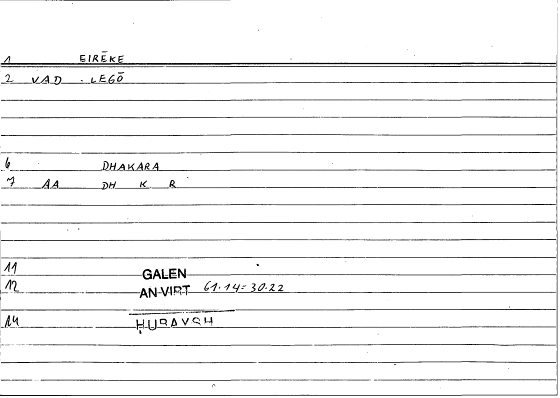 1 EIRĒKE
2 VAD . LEGŌ
6 DHAKARA
7 AA DH K R
11 GALEN
12 AN VIRT 61.14=30.22
14